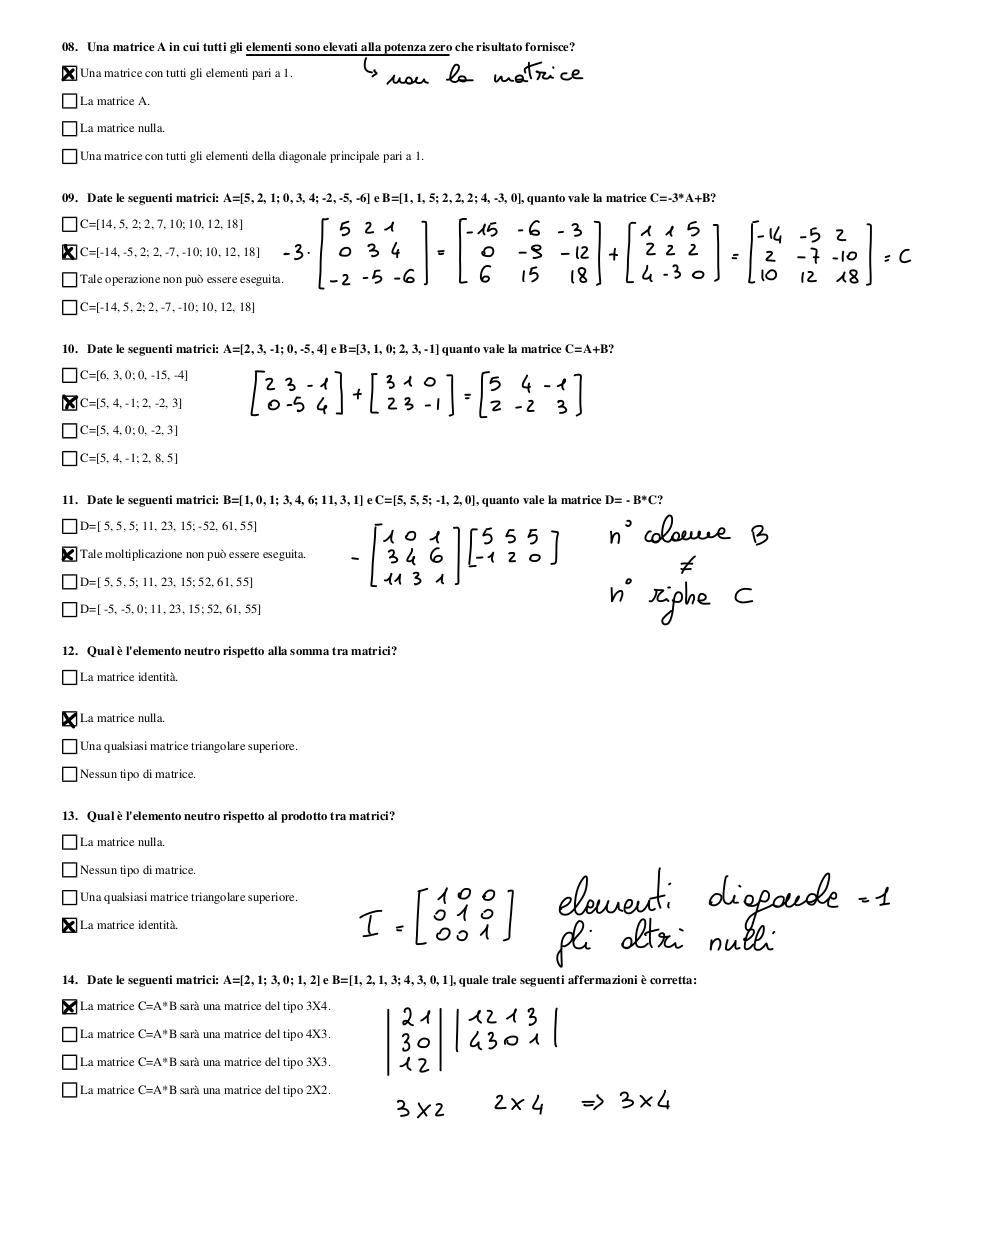 08. Una matrice A in cui tutti gli elementi sono elevati alla potenza zero che risultato fornisce?
Una matrice con tutti gli elementi pari a 1.
non la matrice
La matrice A.
La matrice nulla.
Una matrice con tutti gli elementi della diagonale principale pari a 1.
09. Date le seguenti matrici: A=[5, 2, 1; 0, 3, 4; -2, -5, -6] e B=[1, 1, 5; 2, 2, 2; 4, -3, 0], quanto vale la matrice C=-3*A+B?
C=[14, 5, 2; 2, 7, 10; 10, 12, 18]
C=[-14, -5, 2; 2, -7, -10; 10, 12, 18]
Tale operazione non può essere eseguita.
C=[-14, 5, 2; 2, -7, -10; 10, 12, 18]
5 2 1 -15 -6 -3 1 1 5 -14 -5 2
-3· 0 3 4 = 0 -9 -12 + 2 2 2 = 2 -7 -10 = C
-2 -5 -6 6 15 18 4 -3 0 10 12 18
10. Date le seguenti matrici: A=[2, 3, -1; 0, -5, 4] e B=[3, 1, 0; 2, 3, -1] quanto vale la matrice C=A+B?
C=[6, 3, 0; 0, -15, -4]
C=[5, 4, -1; 2, -2, 3]
C=[5, 4, 0; 0, -2, 3]
C=[5, 4, -1; 2, 8, 5]
2 3 -1 + 3 1 0 = 5 4 -1
0 -5 4 2 3 -1 2 -2 3
11. Date le seguenti matrici: B=[1, 0, 1; 3, 4, 6; 11, 3, 1] e C=[5, 5, 5; -1, 2, 0], quanto vale la matrice D= - B*C?
D=[ 5, 5, 5; 11, 23, 15; -52, 61, 55]
Tale moltiplicazione non può essere eseguita.
D=[ 5, 5, 5; 11, 23, 15; 52, 61, 55]
D=[ -5, -5, 0; 11, 23, 15; 52, 61, 55]
1 0 1 5 5 5
- 3 4 6 -1 2 0
11 3 1
n° colonne B
≠
n° righe C
12. Qual è l'elemento neutro rispetto alla somma tra matrici?
La matrice identità.
La matrice nulla.
Una qualsiasi matrice triangolare superiore.
Nessun tipo di matrice.
13. Qual è l'elemento neutro rispetto al prodotto tra matrici?
La matrice nulla.
Nessun tipo di matrice.
Una qualsiasi matrice triangolare superiore.
La matrice identità.
1 0 0
I = 0 1 0
0 0 1
elementi diagonale = 1
gli altri nulli
14. Date le seguenti matrici: A=[2, 1; 3, 0; 1, 2] e B=[1, 2, 1, 3; 4, 3, 0, 1], quale trale seguenti affermazioni è corretta:
La matrice C=A*B sarà una matrice del tipo 3X4.
La matrice C=A*B sarà una matrice del tipo 4X3.
La matrice C=A*B sarà una matrice del tipo 3X3.
La matrice C=A*B sarà una matrice del tipo 2X2.
2 1 1 2 1 3
3 0 4 3 0 1
1 2
3 x 2 2 x 4 => 3 x 4